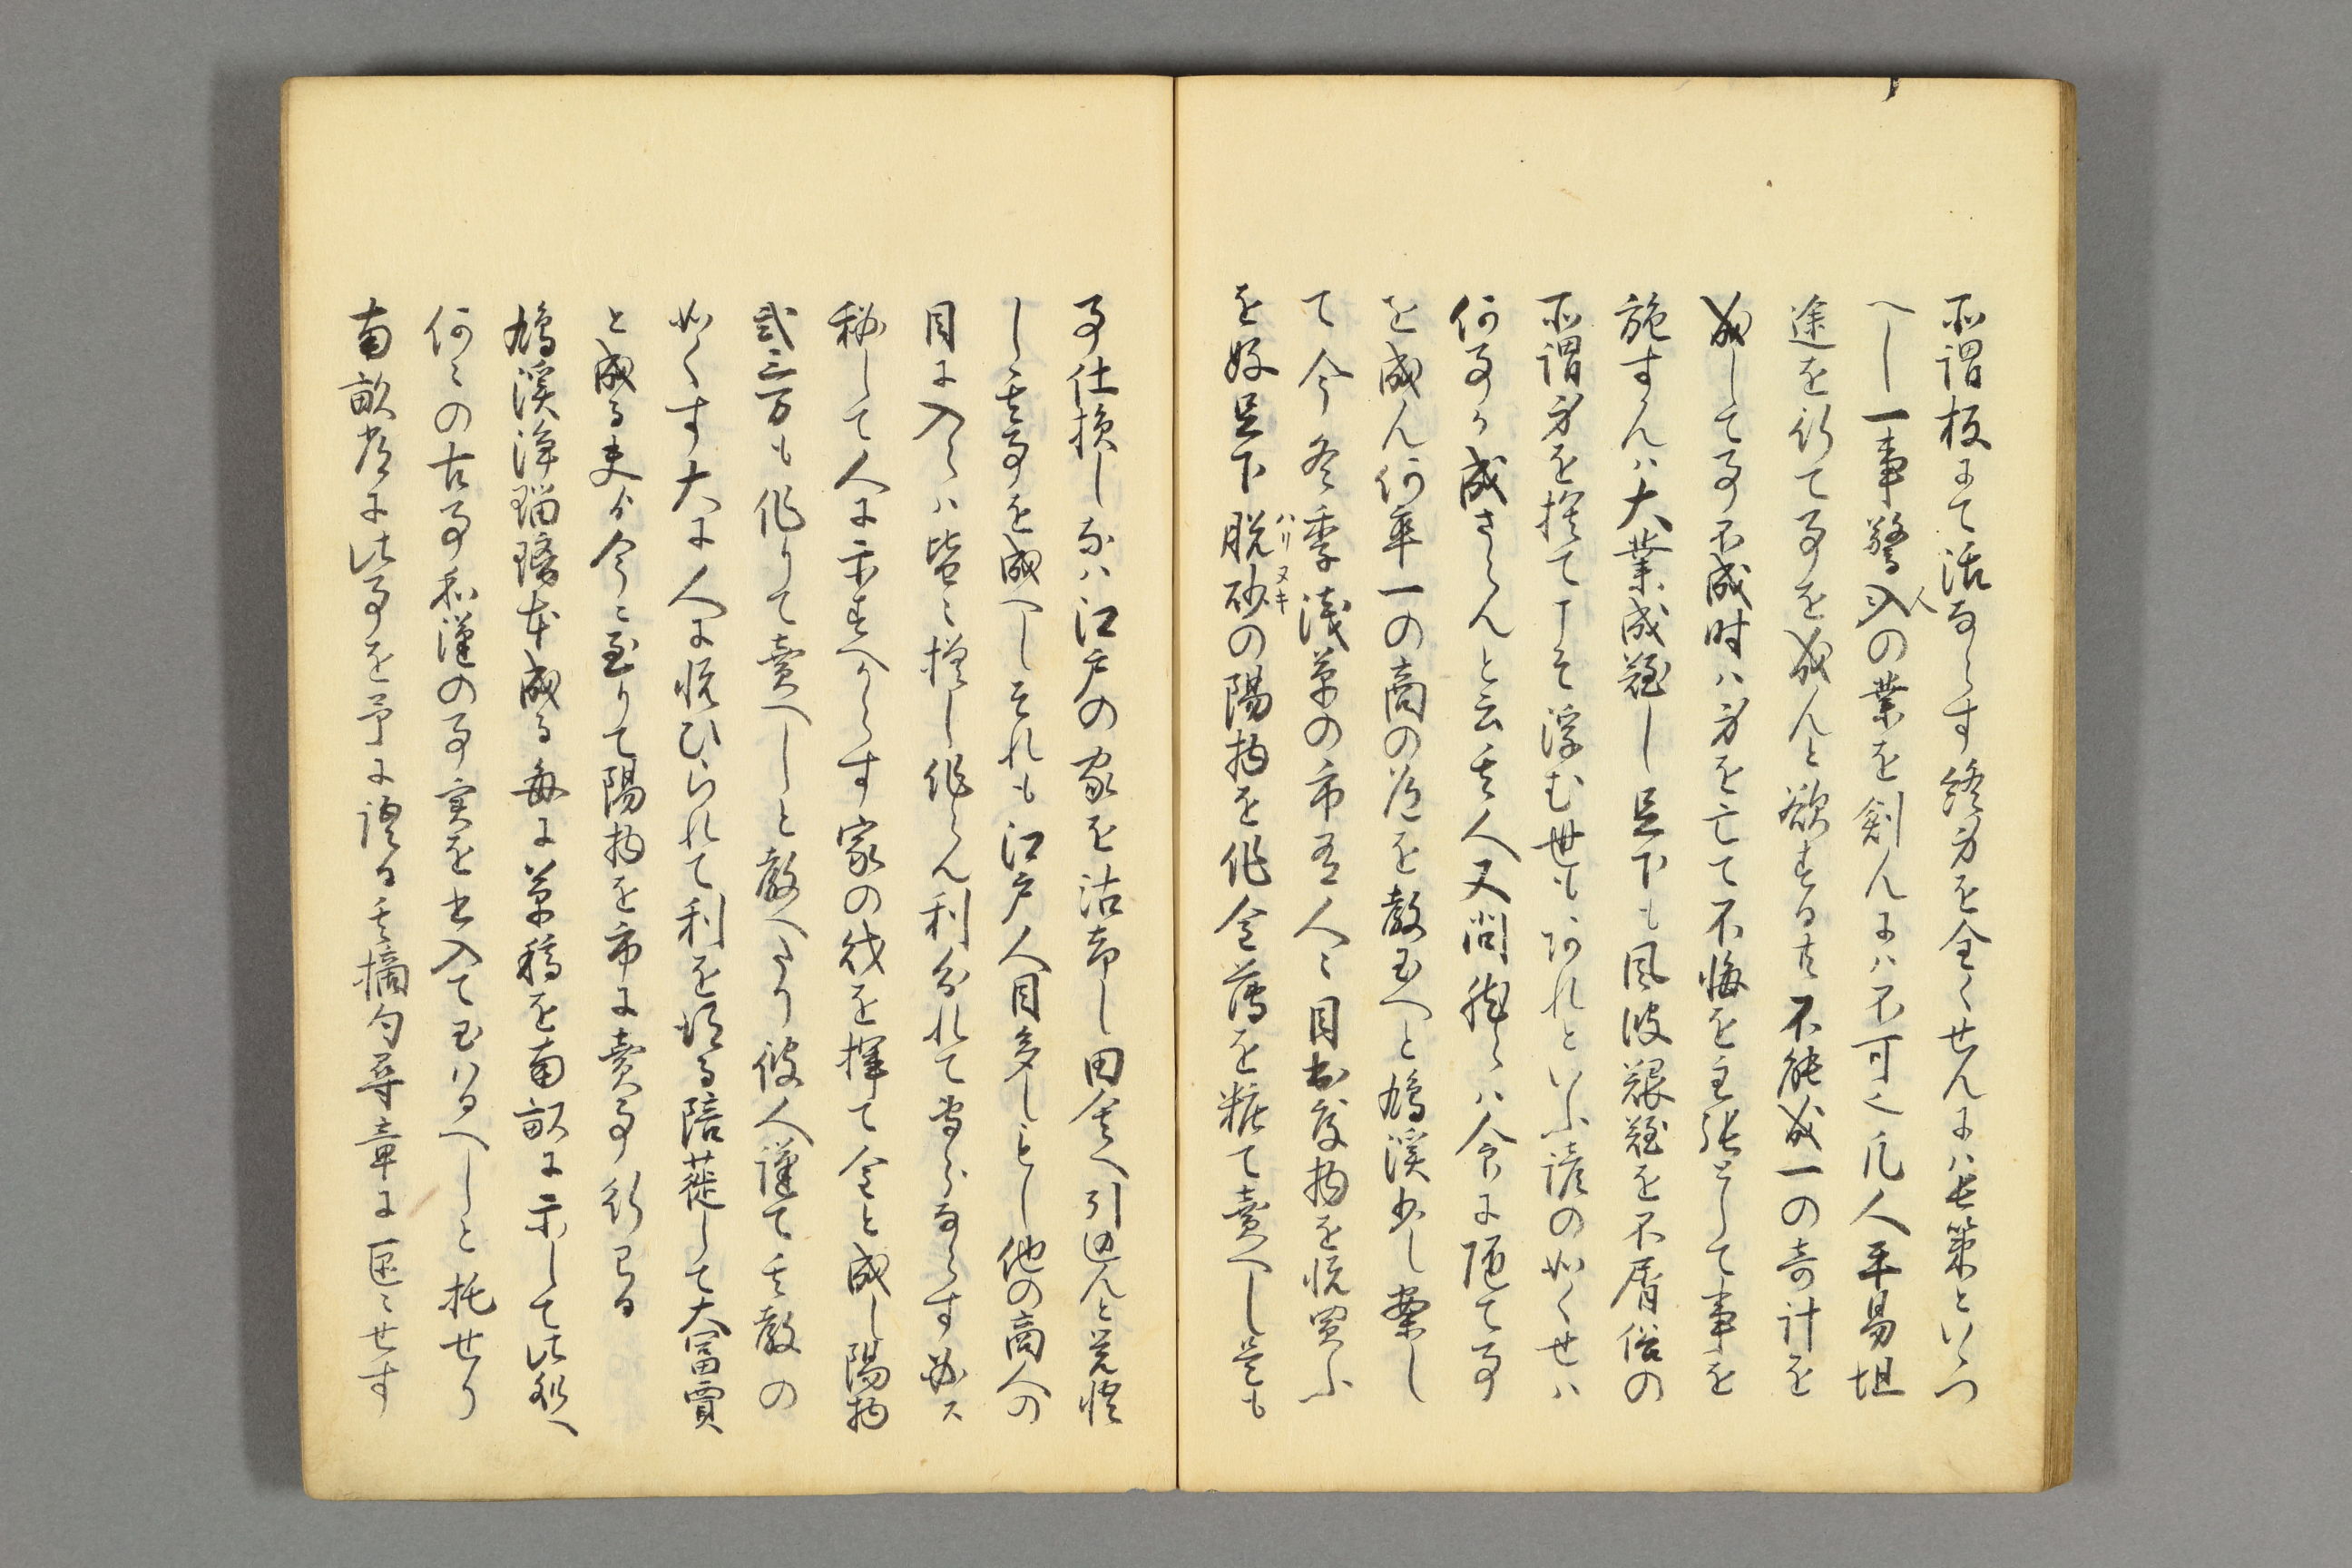 所謂板にて活ならす終身を全くせんには長策といつ
へし一事驚人の業を創んには不可也凡人平易坦
途を行て事を成んと欲する共不能成一の奇計を
成して事不成時は身を亡て不悔を主張として事を
施すんは大業成難し足下も風波艱難を不屑俗の
所謂身を捨てこそ浮む世もあれといふ諺の如くせは
何事か成さらんと云其人又問然らは今に随て事
を成ん何卒一の商の道を教玉へと鳩渓少し案し
て今冬季浅草の市有人々目出度物を悦買ふ
を好足下脱砂の陽物を作金薄を粧て売へし是も
ハリヌキ
事仕損しなは江戸の家を沽却し田舎へ引込んと覚悟
し其事を成へしそれも江戸人目多しとし他の商人の
目に入らは皆々擬し作らん利分れて當らならす必ス
秘して人に示すへからす家の伐を擇て金と成し陽物
弐三万も作りて賣へしと教へたり彼人謹て其教の
如くす大に人に悦ひられて利を得る陪蓰して大富賈
と成る夫より今に至りて陽物を市に賣事行るる
鳩渓浄瑠璃本成る毎に草稿を南畝に示して此処へ
何々の古事和漢の事実を書入て玉はるへしと托せり
南畝常に此事を予に語る其摘句尋章に区々せす